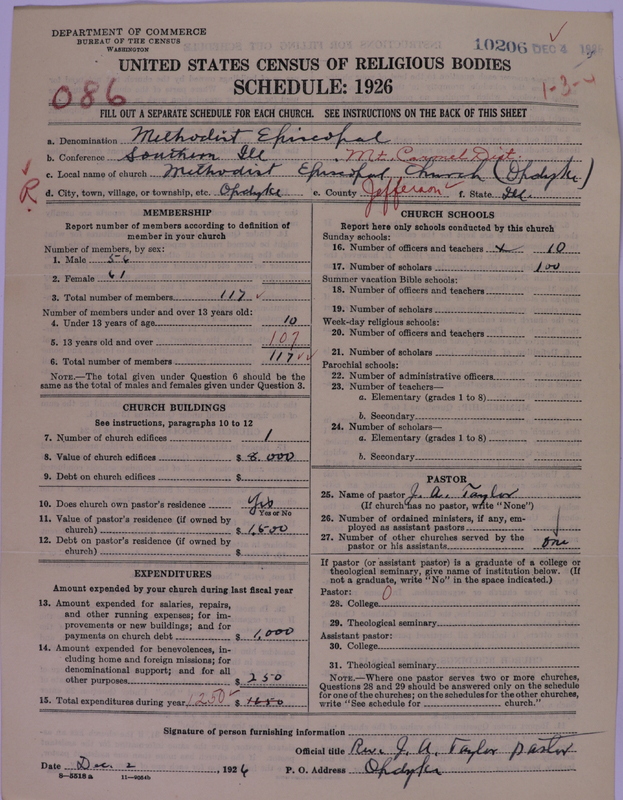 DEPARTMENT OF COMMERCE
BUREAU OF THE CENSUS
WASHINGTON
10206 DEC 4 1926
UNITED STATES CENSUS OF RELIGIOUS BODIES
SCHEDULE: 1926
086
1-3-4
FILL OUT A SEPARATE SCHEDULE FOR EACH CHURCH. SEE INSTRUCTIONS ON THE BACK OF THIS SHEET
a. Denomination Methodist Episcopal
b. Conference Southern Ill Mt. Carmel Dist.
c. Local name of church Methodist Episcopal Church (Opdyke)
R
d. City, town, village, or township, etc. Opdyke e. County Jefferson f. State Ill.
MEMBERSHIP
Report number of members according to definition of member in your church
Number of members, by sex:
1. Male 56
2. Female 61
3. Total number of members 117
Number of members under and over 13 years old:
4. Under 13 years of age 10
5. 13 years old and over 107
6. Total number of members 117
NOTE.—The total given under Question 6 should be the same as the total of males and females given under Question 3.
CHURCH BUILDINGS
See instructions, paragraphs 10 to 12
7. Number of church edifices 1
8. Value of church edifices $ 8.000
9. Debt on church edifices $
10. Does church own pastor's residence Yes
Yes or No
11. Value of pastor's residence (if owned by church) $ 1,500
12. Debt on pastor's residence (if owned by church) $
EXPENDITURES
Amount expended by your church during last fiscal year
13. Amount expended for salaries, repairs, and other running expenses; for improvements or new buildings; and for payments on church debt $ 1,000
14. Amount expended for benevolences, including home and foreign missions; for denominational support; and for all other purposes $ 250
15. Total expenditures during year 1250 $
CHURCH SCHOOLS
Report here only schools conducted by this church
Sunday schools:
16. Number of officers and teachers x 10
17. Number of scholars 100
Summer vacation Bible schools:
18. Number of officers and teachers
19. Number of scholars
Week-day religious schools:
20. Number of officers and teachers
21. Number of scholars
Parochial schools:
22. Number of administrative officers
23. Number of teachers—
a. Elementary (grades 1 to 8)
b. Secondary
24. Number of scholars—
a. Elementary (grades 1 to 8)
b. Secondary
PASTOR
25. Name of pastor J. A. Taylor
(If church has no pastor, write "None")
26. Number of ordained ministers, if any, employed as assistant pastors
27. Number of other churches served by the pastor or his assistants one
If pastor (or assistant pastor) is a graduate of a college or theological seminary, give name of institution below. (If not a graduate, write "No" in the space indicated.)
Pastor: 0
28. College
29. Theological seminary
Assistant pastor:
30. College
31. Theological seminary
NOTE.—Where one pastor serves two or more churches, Questions 28 and 29 should be answered only on the schedule for one of the churches; on the schedules for the other churches, write "See schedule for church."
Signature of person furnishing information
Official title Rev. J. A. Taylor pastor
Date Dec. 2, 1926 P. O. Address Opdyke
8—5518a 11—9054b